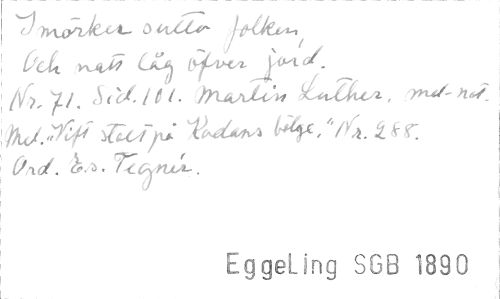 I mörker sutto folken,
Och natt låg öfver jord.
Nr. 71. Sid. 101. Martin Luther, med not.
Mel. "Vift stolt på Kodans bölge," Nr. 288.
Ord. Es. Tegnér.
EggeLing SGB 1890